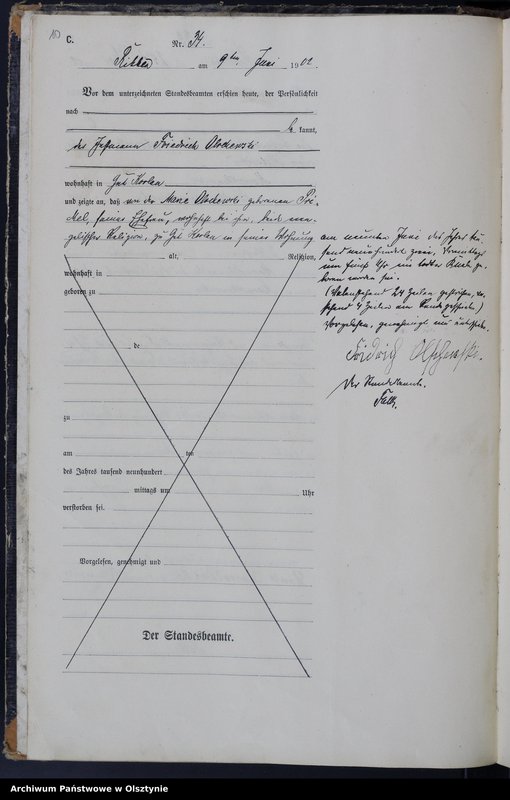 10
C.
Nr. 34.
am 9ten Juni 1902.
Vor dem unterzeichneten Standesbeamten erschien heute, der Persönlichkeit
nach
be kannt,
der Friedrich
wohnhaft in Gut
und zeigte an, daß von der Marie geborenen
seiner Ehefrau, wohnhaft bei ihm, beide evan-
gelischer Religion, zu Gut in seiner Wohnung
alt, Religion,
wohnhaft in
geboren zu
de
zu
am ten
des Jahres tausend neunhundert
mittags um Uhr
verstorben sei.
Vorgelesen, genehmigt und
Der Standesbeamte.
am neunten Juni des Jahres tau-
send neunhundert zwei, Vormittags
um fünf Uhr ein todtes Kind ge-
boren worden sei.
(Nebenstehend 24 Zeilen gestrichen,
4 Zeilen am Rande geschrieben)
Vorgelesen, genehmigt und unterschrieben.
Der Standesbeamte.
Archiwum Państwowe w Olsztynie